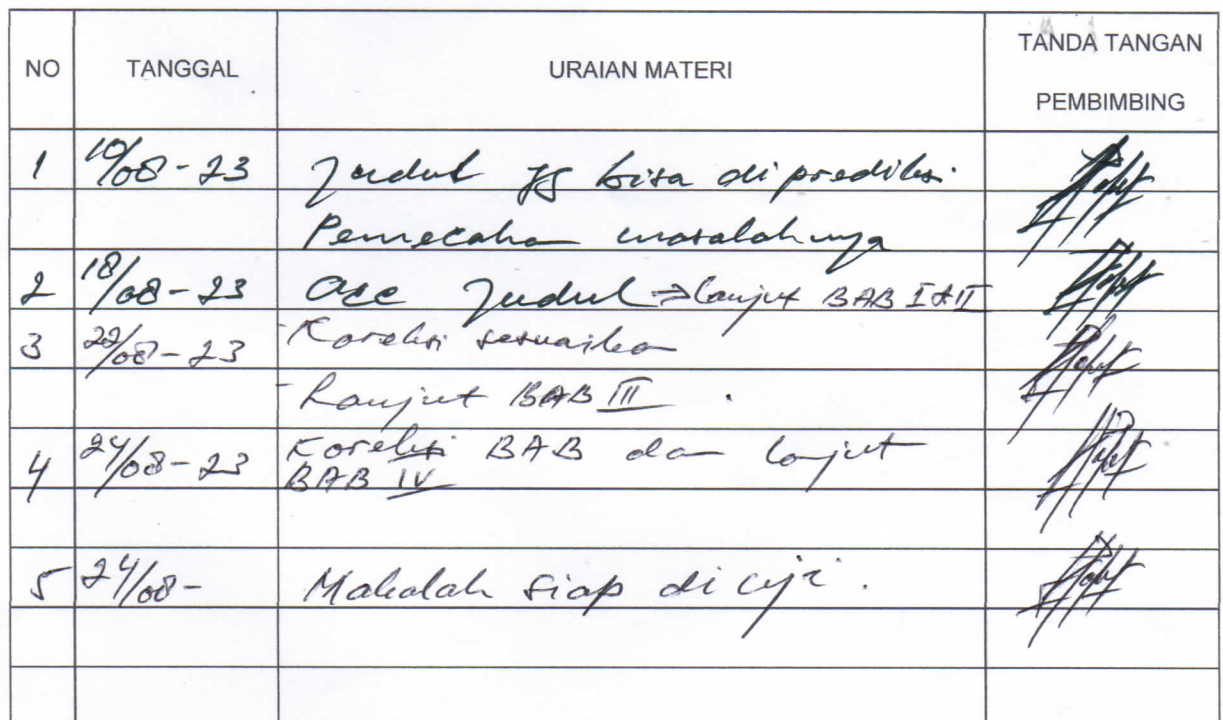 NO TANGGAL URAIAN MATERI TANDA TANGAN
PEMBIMBING
1 10/08-23 Judul yg bisa di prediksi
Pemecahan masalahnya
2 18/08-23 Acc Judul → lanjut BAB I & II
3 22/08-23 - Koreksi sesuaikan
- Lanjut BAB III .
4 24/08-23 Koreksi BAB dan lanjut
BAB IV
5 24/08- Makalah siap di uji .